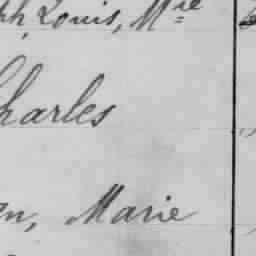 ph, Louis, Mie
Charles
an, Marie